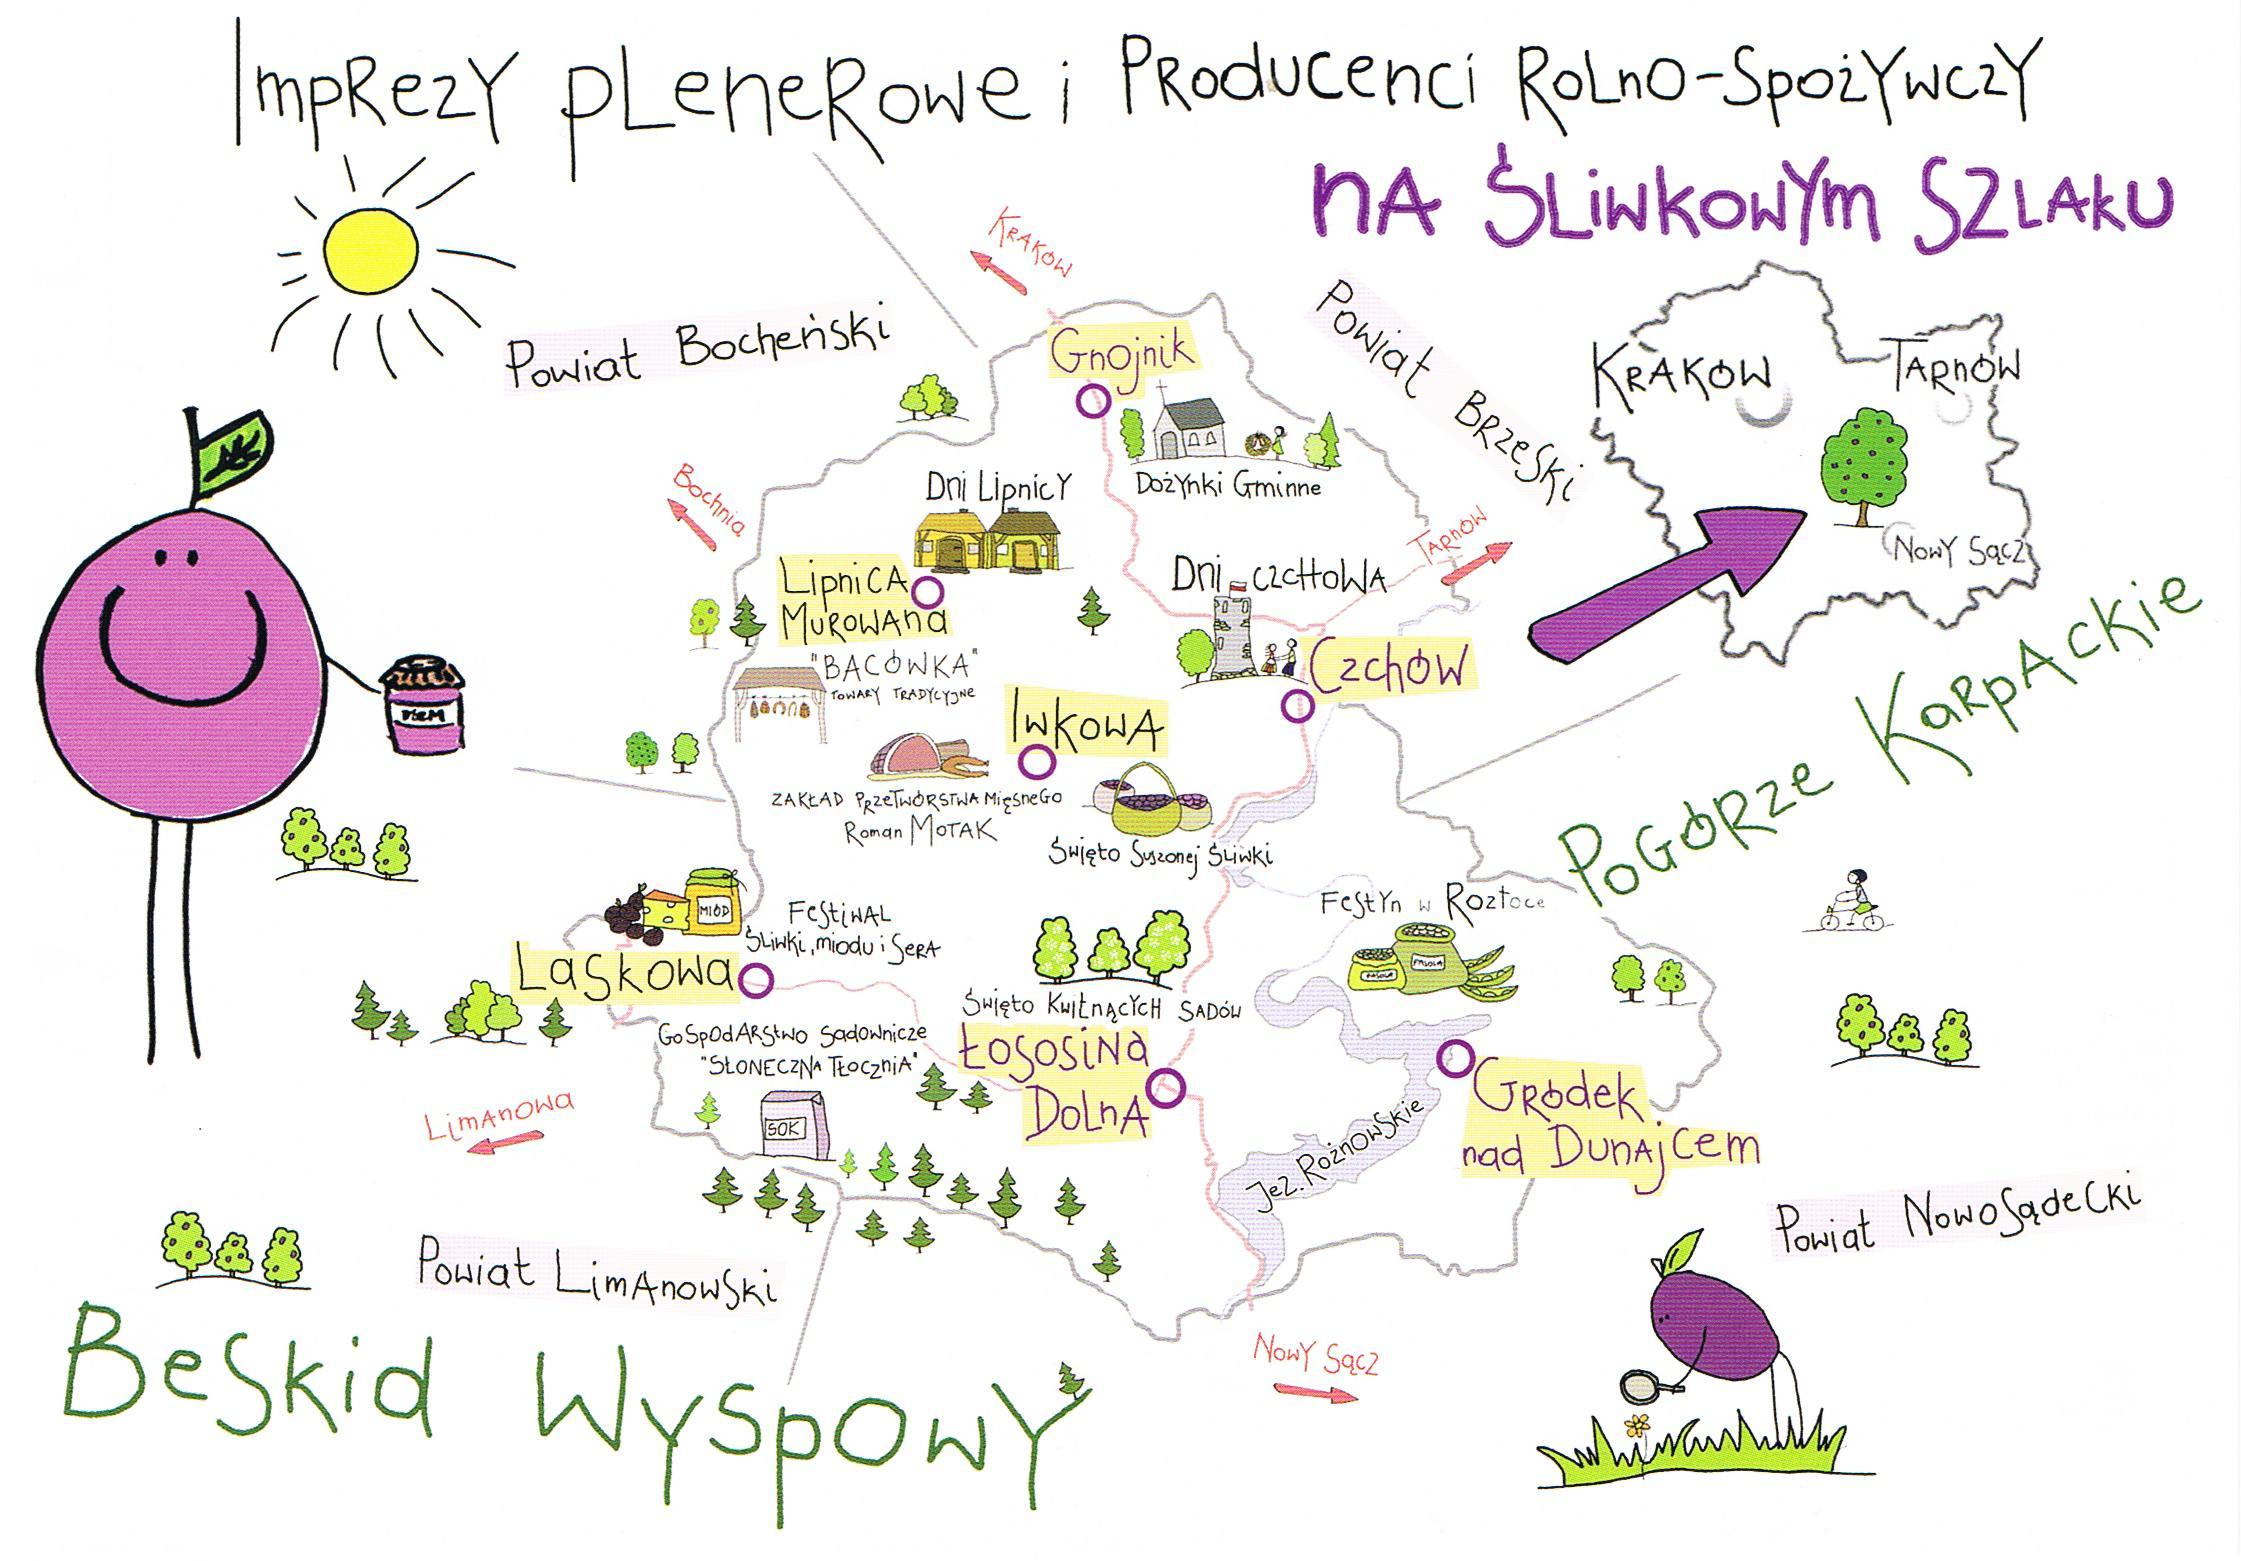 Imprezy plenerowe i Producenci Rolno-Spożywczy
na Śliwkowym Szlaku
Kraków
Powiat Bocheński
Gnojnik
Powiat Brzeski
Kraków
Tarnów
Nowy Sącz
Bochnia
Dni Lipnicy
Dożynki Gminne
Tarnów
Lipnica
Murowana
Dni Czchowa
Czchów
"Bacówka"
Towary Tradycyjne
Iwkowa
Zakład Przetwórstwa Mięsnego
Roman Motak
Święto Suszonej Śliwki
Pogórze Karpackie
Miód
Festiwal
Śliwki, miodu i sera
Laskowa
Festyn w Roztoce
Fasola
Fasola
Święto Kwitnących Sadów
Łososina
Dolna
Gospodarstwo Sadownicze
"Słoneczna Tłocznia"
Sok
Gródek
nad Dunajcem
Jez. Rożnowskie
Limanowa
Powiat Limanowski
Powiat Nowosądecki
Nowy Sącz
Beskid Wyspowy